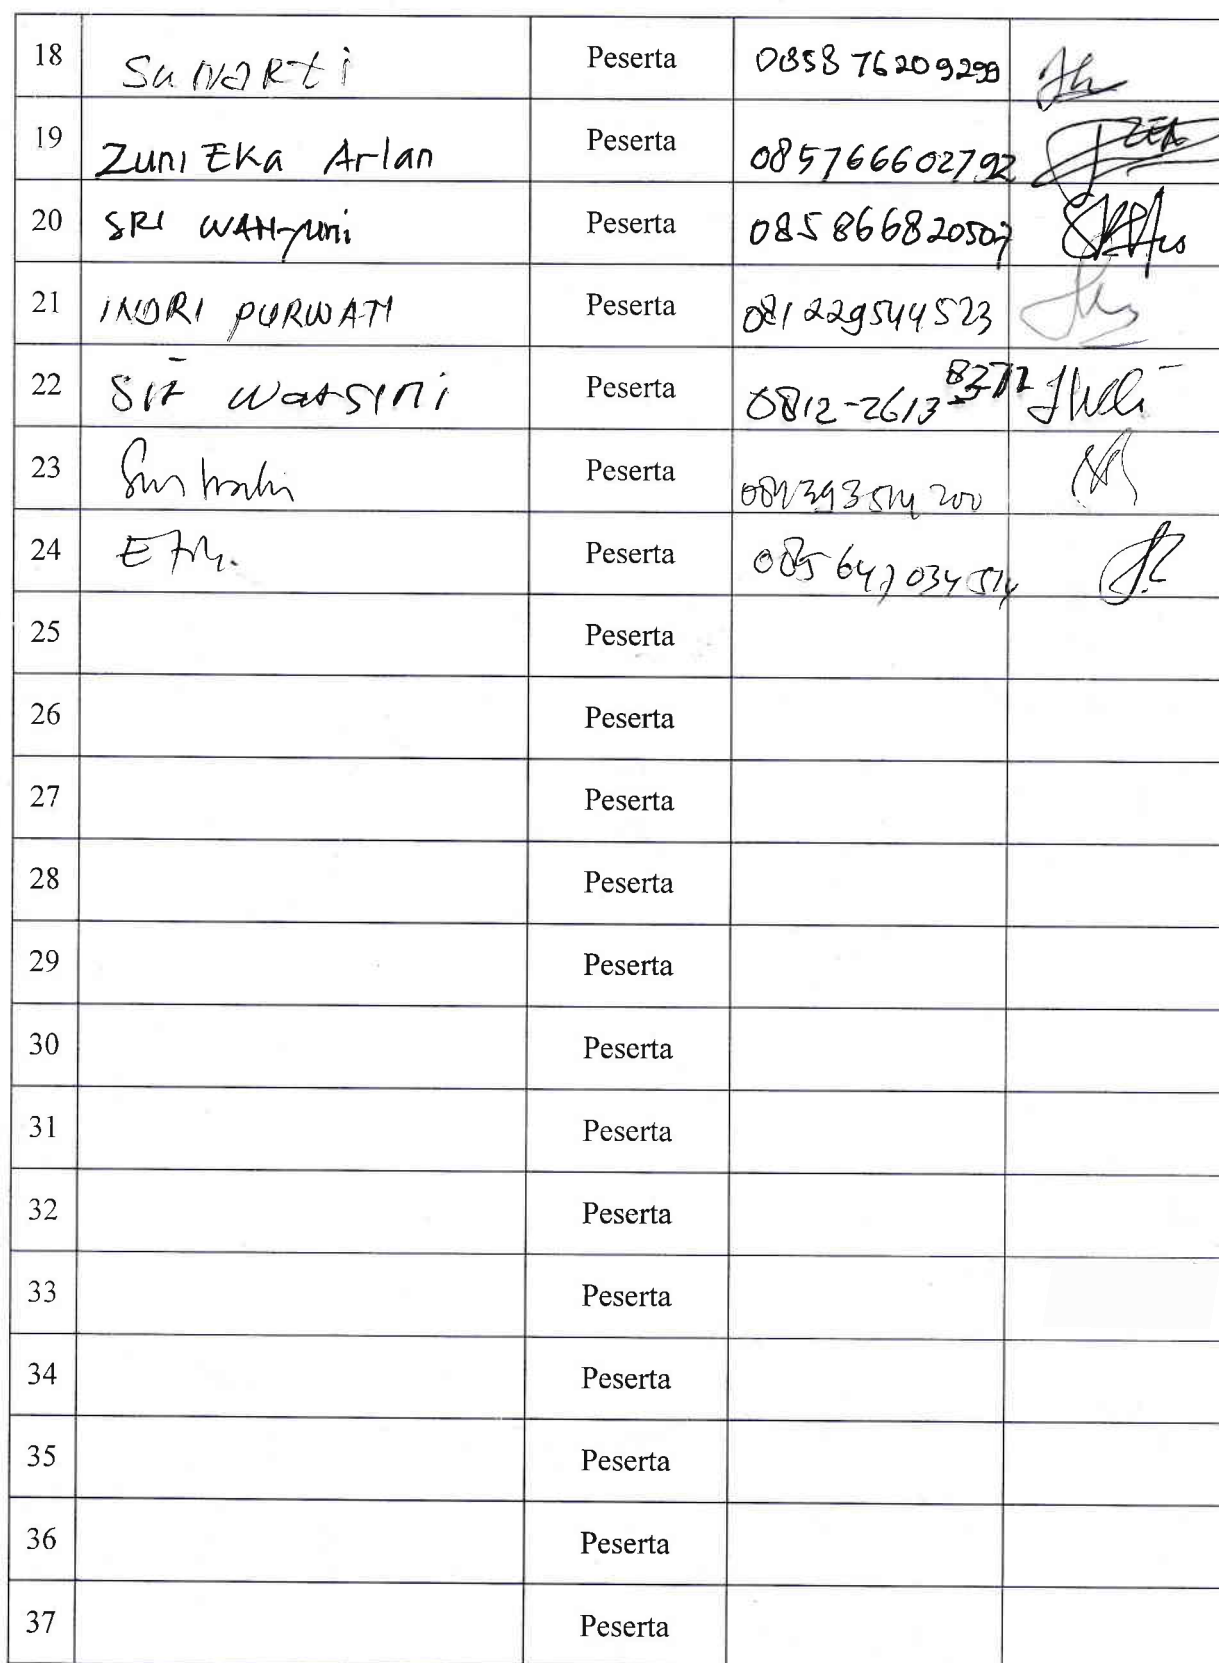 18 Sunarti Peserta 085876209299
19 Zuni Eka Arlan Peserta 085766602792
20 SRI WAHyuni Peserta 085866820507
21 INDRI PURWATI Peserta 081229544523
22 Peserta 0812-2613-8272
23 Peserta
24 Peserta
25 Peserta
26 Peserta
27 Peserta
28 Peserta
29 Peserta
30 Peserta
31 Peserta
32 Peserta
33 Peserta
34 Peserta
35 Peserta
36 Peserta
37 Peserta